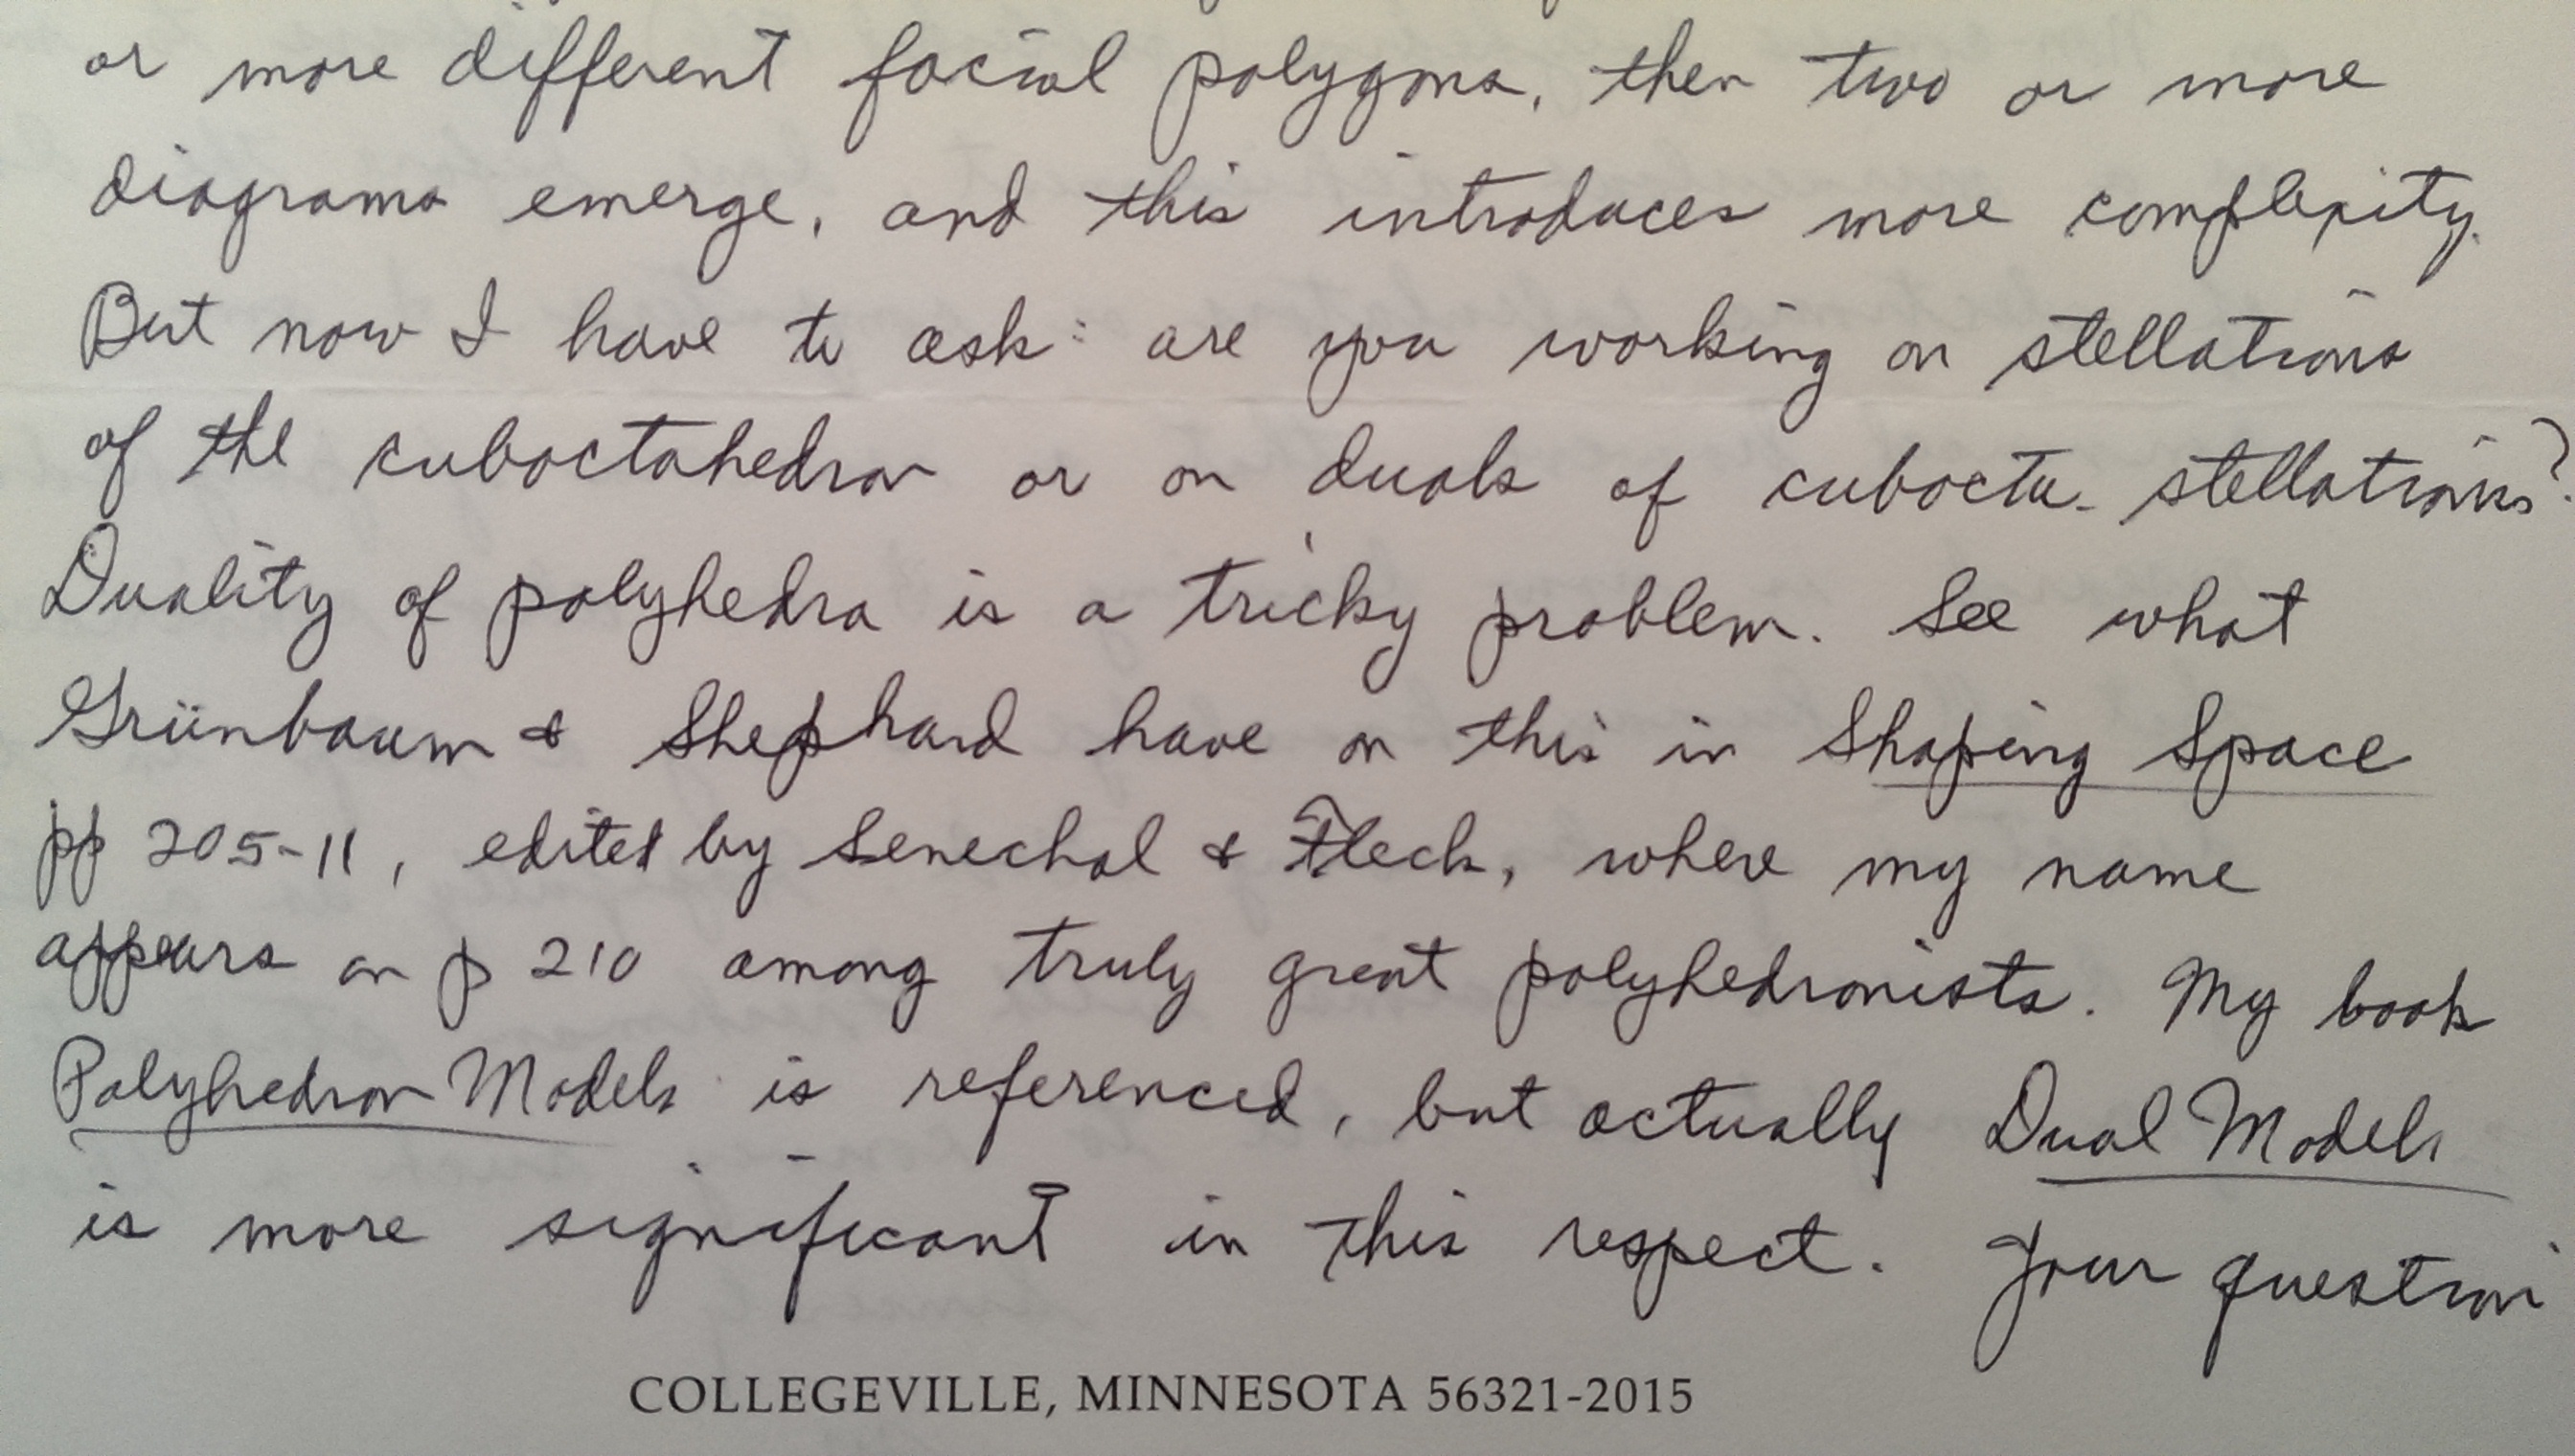 or more different facial polygons, then two or more
diagrams emerge, and this introduces more complexity.
But now I have to ask: are you working on stellations
of the cuboctahedron or on duals of cubocta- stellations?
Duality of polyhedra is a tricky problem. See what
Grünbaum & Shephard have on this in Shaping Space
pp 205-11, edited by Senechal & Fleck, where my name
appears on p 210 among truly great polyhedronists. My book
Polyhedron Models is referenced, but actually Dual Models
is more significant in this respect. Your question
COLLEGEVILLE, MINNESOTA 56321-2015